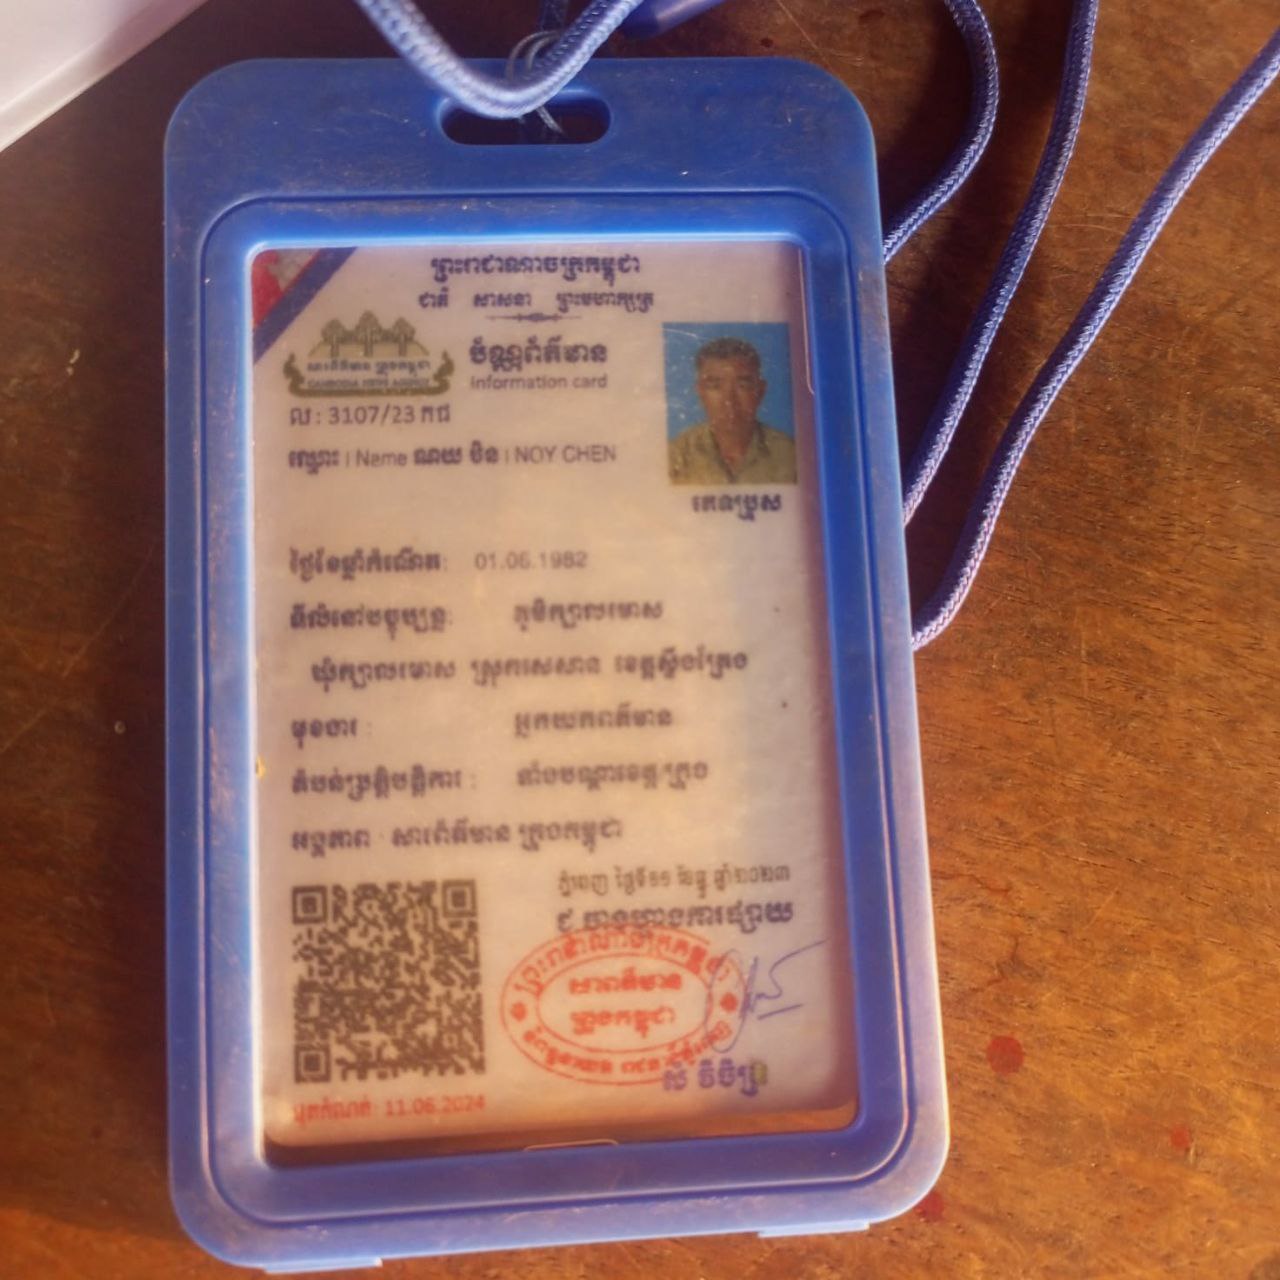 ព្រះរាជាណាចក្រកម្ពុជា
ជាតិ សាសនា ព្រះមហាក្សត្រ
សារព័ត៌មាន ក្រុងកម្ពុជា
CAMBODIA NEWS AGENCY
ប័ណ្ណព័ត៌មាន
Information card
ល : 3107/23 កជ
ឈ្មោះ | Name ណយ ចិន | NOY CHEN
ភេទប្រុស
ថ្ងៃខែឆ្នាំកំណើត: 01.06.1982
ទីលំនៅបច្ចុប្បន្ន: ភូមិក្បាលរមាស
ឃុំក្បាលរមាស ស្រុកសេសាន ខេត្តស្ទឹងត្រែង
មុខងារ : អ្នកយកព័ត៌មាន
តំបន់ប្រតិបត្តិការ : តាំងបណ្តាខេត្ត/ក្រុង
អង្គភាព : សារព័ត៌មាន ក្រុងកម្ពុជា
ភ្នំពេញ ថ្ងៃទី១១ ខែធ្នូ ឆ្នាំ២០២៣
ជ.ប្រធានការផ្សាយ
ព្រះរាជាណាចក្រកម្ពុជា
សារព័ត៌មាន
ក្រុងកម្ពុជា
សំ វិចិត្រ
ផុតកំណត់: 11.06.2024